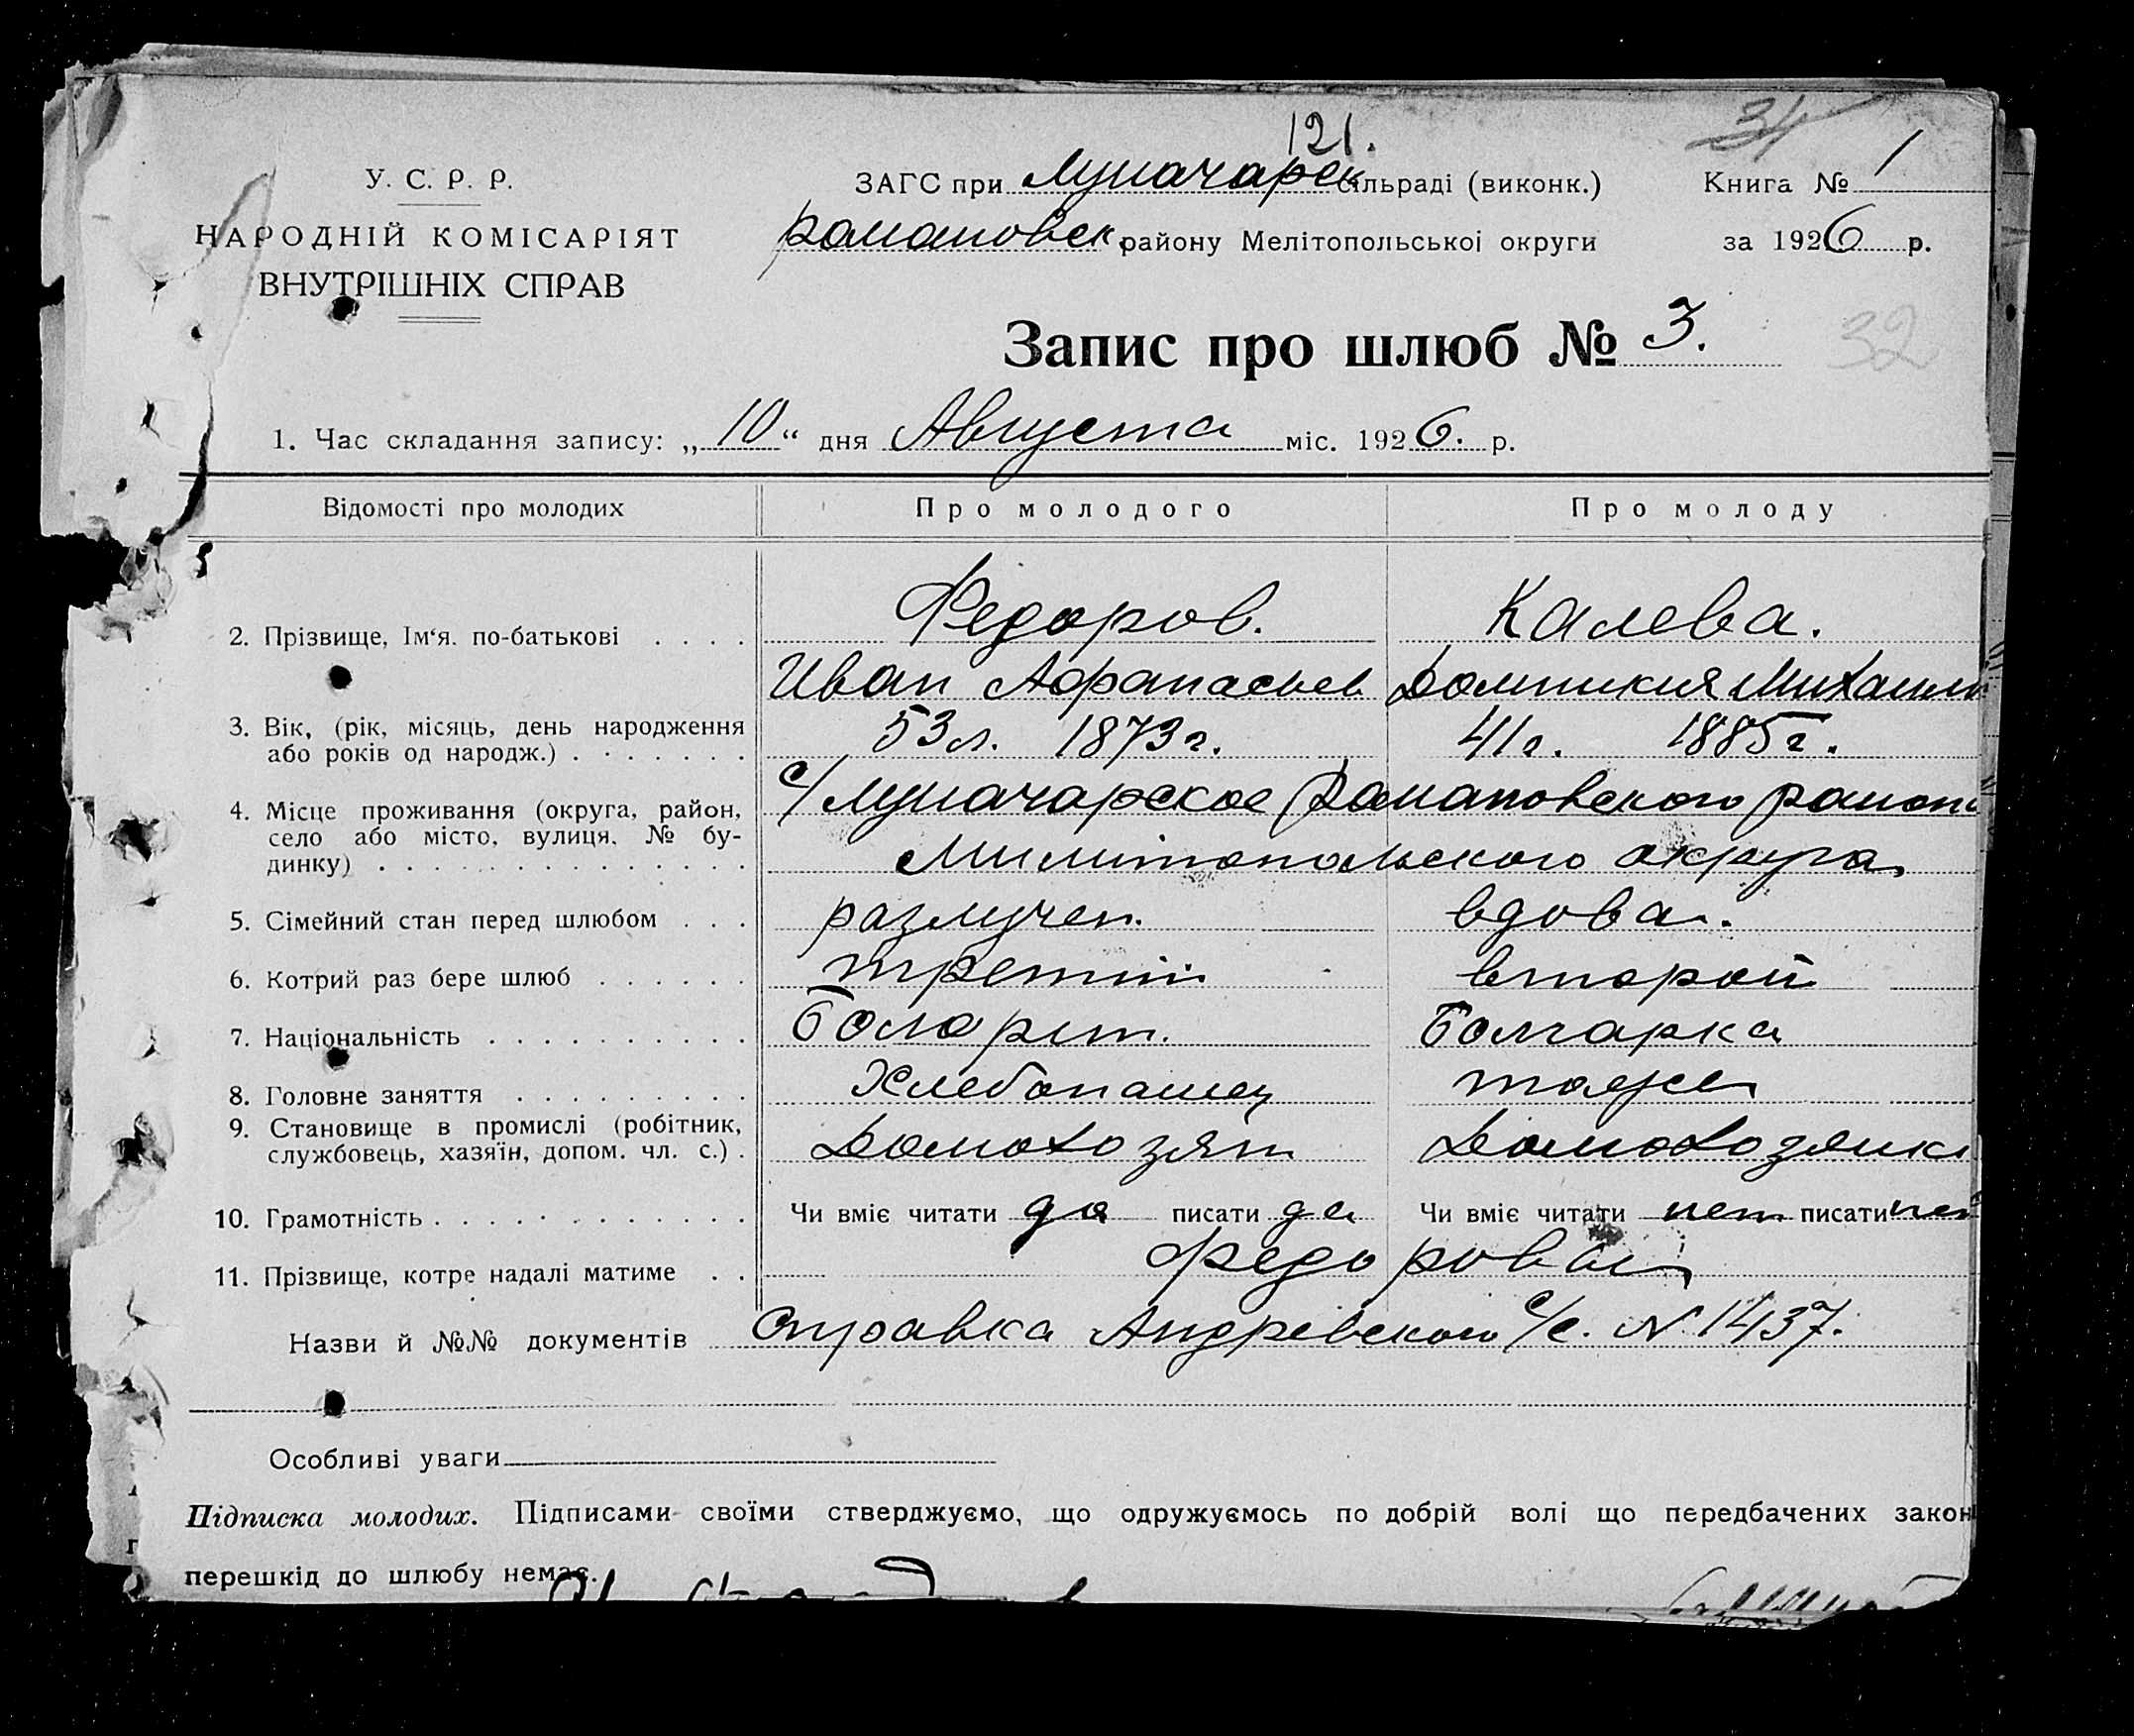 121.
34
У. С. Р. Р.
ЗАГС при Луначарск сільраді (виконк.)
Книга № 1
НАРОДНІЙ КОМІСАРІЯТ
Романовск району Мелітопольської округи
за 1926 р.
ВНУТРІШНІХ СПРАВ
Запис про шлюб № 3.
32
1. Час складання запису: „10“ дня Августа міс. 1926. р.
Відомості про молодих
Про молодого
Про молоду
2. Прізвище, Ім‘я. по-батькові . . . .
Федоров.
Калева.
Иван Афанасьев
Домникия Михаил
3. Вік, (рік, місяць, день народження
або років од народж.) . . . . . . .
53 л. 1873 г.
41 г. 1885 г.
4. Місце проживання (округа, район,
село або місто, вулиця, № бу-
динку) . . . . . . . . . . . . . .
с/ Луначарское Романовского района
Милитопольского округа
5. Сімейний стан перед шлюбом . . .
разлучен.
вдова.
6. Котрий раз бере шлюб . . . . . .
третий
второй
7. Національність . . . . . . . . . .
Болгарин.
Болгарка
8. Головне заняття . . . . . . . . .
Хлебопашец
тоже
9. Становище в промислі (робітник,
службовець, хазяїн, допом. чл. с.) .
Домохозяин
Домохозяйка
10. Грамотність . . . . . . . . . . . . .
Чи вміє читати да писати да
Чи вміє читати нет писати нет
11. Прізвище, котре надалі матиме . .
Федоровы
Назви й №№ документів
Справка Андревского с/с. № 1437.
Особливі уваги
Підписка молодих. Підписами своїми стверджуємо, що одружуємось по добрій волі що передбачених закон
перешкід до шлюбу немає.